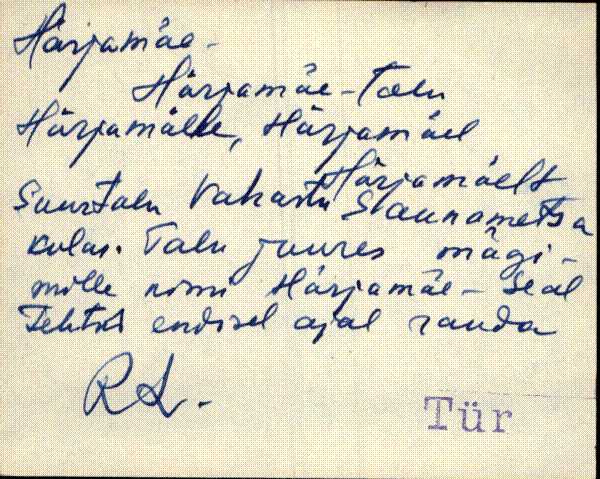 Härjamäe -
Härjamäe-talu
Härjamäele, Härjamäel
Härjamäelt
Suurtalu Vahastu Saunametsa
külas. Talu juures mägi -
mille nimi Härjamäe - Seal
Tehti endisel ajal rauda
R L.
Tür